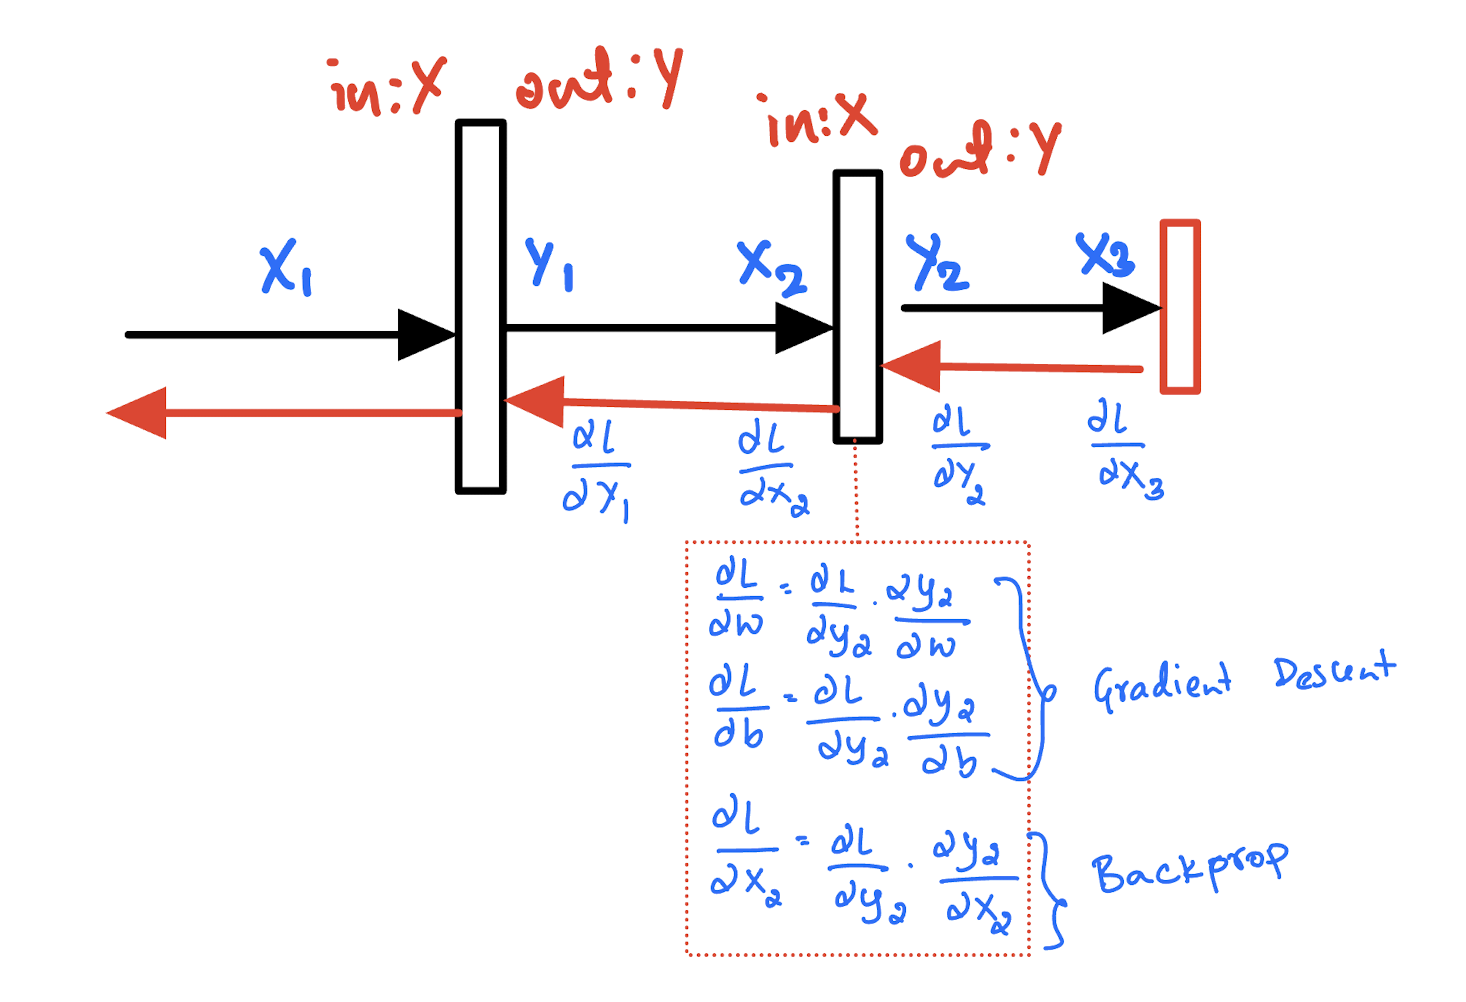 in: X
out: Y
in: X
out: Y
X₁
Y₁
X₂
Y₂
X₃
∂L/∂Y₁
∂L/∂X₂
∂L/∂Y₂
∂L/∂X₃
∂L/∂w = ∂L/∂y₂ . ∂y₂/∂w
∂L/∂b = ∂L/∂y₂ . ∂y₂/∂b
Gradient Descent
∂L/∂X₂ = ∂L/∂y₂ . ∂y₂/∂X₂
Backprop